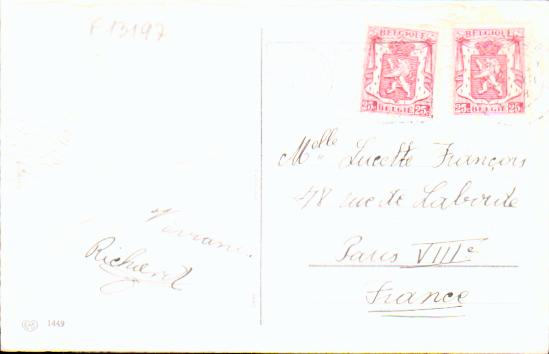 F 13197
BELGIQUE
25c BELGIË 25c
BELGIQUE
25c BELGIË 25c
Melle Lucette François
48 rue de Laborde
Paris VIIIe
France
1449